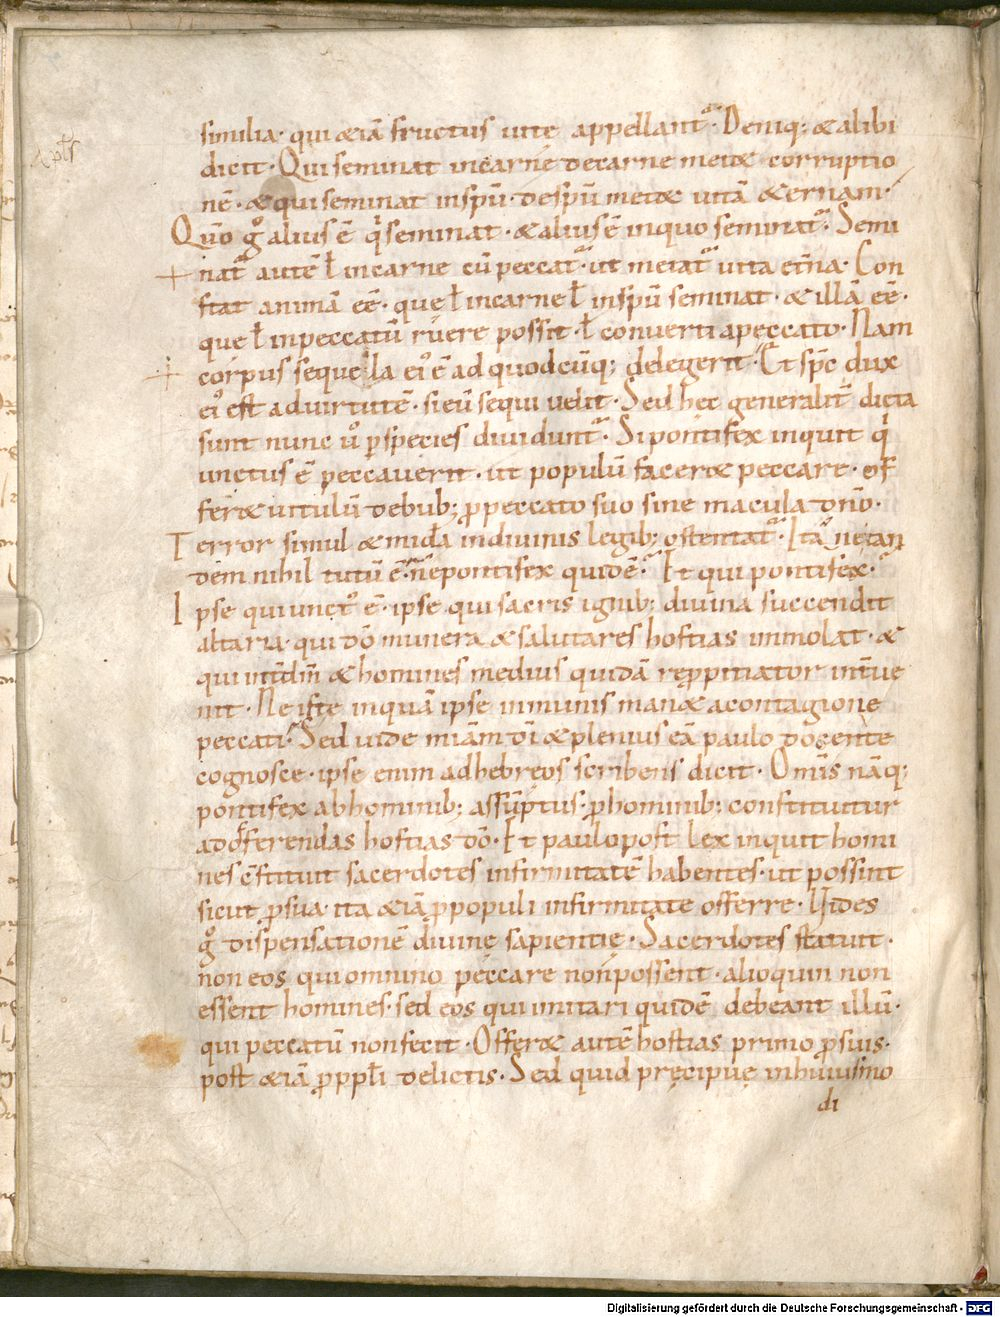 similia· qui &iā fructus uite appellant᷑· Deniq; & alibi
dicit· Qui seminat incarne decarne met& corruptio
nē· & qui seminat inspū· despū met& uitā & ernam·
Quo gͦ alius ē qͥ seminat· & alius ē inquo seminat᷑· Semi
nat᷑ autē ł incarne cū peccat᷑· ut metat᷑ uita etna· Con
stat animā eē· que ł incarne ł inspū seminat· & illā eē·
que ł inpeccatū ruere possit· ł converti apeccato· Nam
corpus sequela ei᷒ ē ad quodcūq; delegerit· Et spc dux
ei᷒ est aduirtutē· si eū sequi uelit· Sed hec generalit᷑ dicta
sunt nunc uͦ p̱ species diuidunt᷑· Si pontifex inquit qͥ
unctus ē peccauerit· ut populū facer& peccare· of
fer& uitulū debub; ꝓpeccato suo sine macula dn̄o·
Terror simul & mīda indiuinis legib; ostentat᷑· Ita netan
dem nihil tutū ē· nepontifex quidē· Et qui pontifex·
Ipse qui unct᷒ ē· ipse qui sacris ignib; diuina succendit
altaria· qui dō munera & salutares hostias immolat· &
qui int̄ dm̄ & homines medius quidā repꝓpitiator int̄ue
nit· Ne iste inquā ipse inmunis man& acontagione
peccati· Sed uide miām dī & plenius eā paulo docente
cognosce· ipse enim adhebreos scribens dicit· Omīs nāq;
pontifex abhominib; assūptus· ꝓhominib; constituitur
adofferendas hostias dō· Et paulopost Lex inquit homi
nes c̄stituit sacerdotes infirmitatē habentes· ut possint
sicut ꝓsua· ita &iā ꝓpopuli infirmitate offerre· Vides
gͦ dispensationē diuinę sapientię· Sacerdotes statuit·
non eos qui omnino peccare non possent· alioquin non
essent homines· sed eos qui imitari quidē debeant illū·
qui peccatū nonfecit· Offer& autē hostias primo ꝓsuis·
post &iā ꝓpp̄li delictis· Sed quid pręcipue inhuiusmo
di
Digitalisierung gefördert durch die Deutsche Forschungsgemeinschaft - DFG